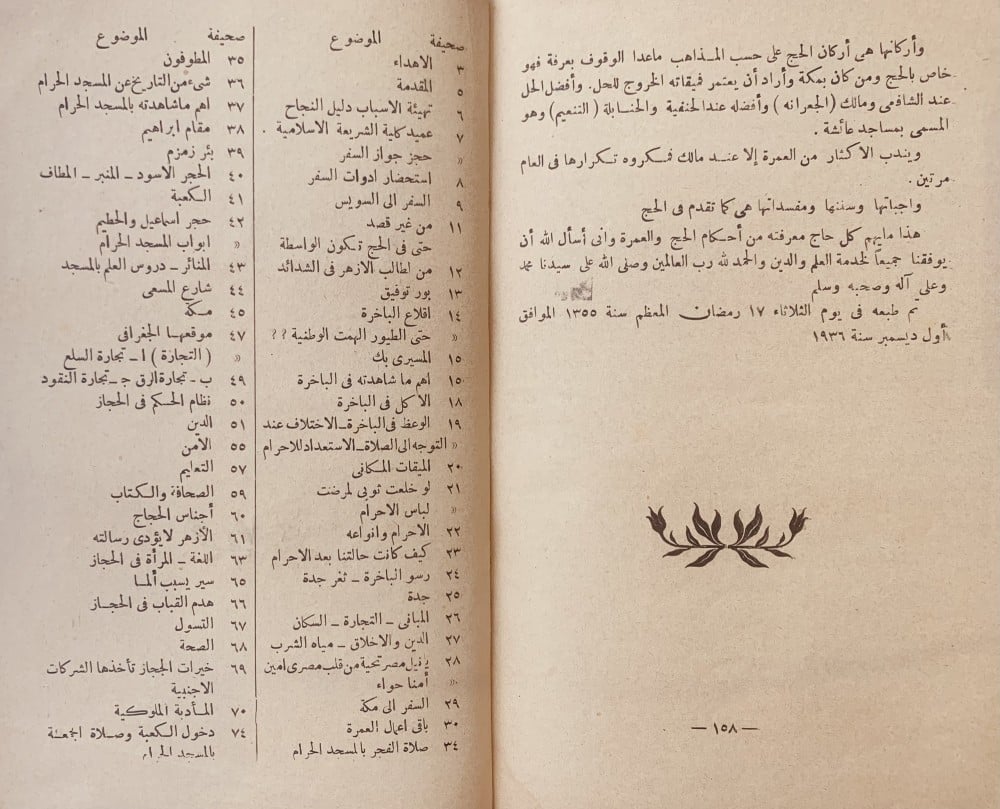 وأركانها هى أركان الحج على حسب المذاهب ماعدا الوقوف بعرفة فهو
خاص بالحج ومن كان بمكة وأراد أن يعتمر فميقاته الخروج للحل. وأفضل الحل
عند الشافعى ومالك (الجعرانه) وأفضله عند الحنفية والحنابلة (التنعيم) وهو
المسمى بمساجد عائشة .
ويندب الأكثار من العمرة إلا عند مالك فمكروه تكرارها فى العام
مرتين .
واجباتها وسننها ومفسداتها هى كما تقدم فى الحج
هذا مايهم كل حاج معرفته من أحكام الحج والعمرة وانى أسأل الله أن
يوفقنا جميعاً لخدمة العلم والدين والحمد لله رب العالمين وصلى الله على سيدنا محمد
وعلى آله وصحبه وسلم
تم طبعه فى يوم الثلاثاء ١٧ رمضان المعظم سنة ١٣٥٥ الموافق
أول ديسمبر سنة ١٩٣٦
— ١٥٨ —
صحيفة الموضوع
٣ الاهداء
٥ المقدمة
٦ تهيئة الاسباب دليل النجاح
٧ عميد كلية الشريعة الاسلامية .
« حجز جواز السفر
٨ استحضار ادوات السفر
٩ السفر الى السويس
١١ من غير قصد
حتى فى الحج تكون الواسطة
١٢ من اطالب الازهر فى الشدائد
١٣ بور توفيق
١٤ اقلاع الباخرة
« حتى الطيور الهمت الوطنية ??
١٥ المسيرى بك
١٥ اهم ما شاهدته فى الباخرة
١٨ الاكل فى الباخرة
١٩ الوعظ فى الباخرة ــ الاختلاف عند
« التوجه الى الصلاة ــ الاستعداد للاحرام
٢٠ الميقات المكانى
٢١ لو خلعت ثوبى لمرضت
« لباس الاحرام
٢٢ الاحرام وانواعه
٢٣ كيف كانت حالتنا بعد الاحرام
٢٤ رسو الباخرة ــ ثغر جدة
٢٥ جدة
٢٦ المبانى ــ التجارة ــ السكان
٢٧ الدين والاخلاق ــ مياه الشرب
٢٨ يا نيل مصر تحية من قلب مصرى امين
« أمنا حواء
٢٩ السفر الى مكة
٣٠ باقى اعمال العمرة
٣٤ صلاة الفجر بالمسجد الحرام
صحيفة الموضوع
٣٥ المطوفون
٣٦ شىء من التاريخ عن المسجد الحرام
٣٧ اهم ماشاهدته بالمسجد الحرام
٣٨ مقام ابراهيم
٣٩ بئر زمزم
٤٠ الحجر الاسود ــ المنبر ــ المطاف
٤١ الكعبة
٤٢ حجر اسماعيل والحطيم
« ابواب المسجد الحرام
٤٣ المنائر ــ دروس العلم بالمسجد
٤٤ شارع المسعى
٤٥ مكة
٤٧ موقعها الجغرافى
« ( التجارة ) ا ــ تجارة السلع
٤٩ ب ــ تجارة الرق ج ــ تجارة النقود
٥٠ نظام الحكم فى الحجاز
٥١ الدين
٥٥ الأمن
٥٧ التعليم
٥٩ الصحافة والكتاب
٦٠ أجناس الحجاج
٦١ الأزهر لايؤدى رسالته
٦٣ اللغة ــ المرأة فى الحجاز
٦٥ سير يسبب ألما
٦٦ هدم القباب فى الحجاز
٦٧ التسول
٦٨ الصحة
٦٩ خيرات الحجاز تأخذها الشركات
الاجنبية
٧٠ المأدبة الملوكية
٧٤ دخول الكعبة وصلاة الجمعة
بالمسجد الحرام